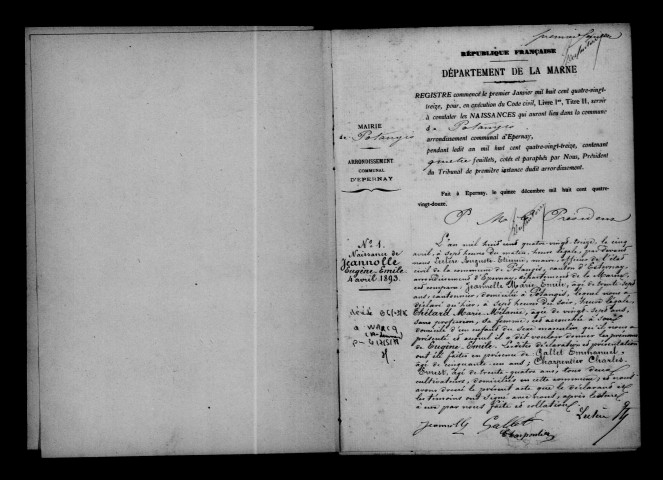 premier feuillet
RÉPUBLIQUE FRANÇAISE
DÉPARTEMENT DE LA MARNE
REGISTRE commencé le premier Janvier mil huit cent quatre-vingt-
treize, pour, en exécution du Code civil, Livre Ier, Titre II, servir
à constater les NAISSANCES qui auront lieu dans la commune
de Potangis
arrondissement communal d'Epernay,
pendant ledit an mil huit cent quatre-vingt-treize, contenant
quatre feuillets, cotés et paraphés par Nous, Président
du Tribunal de première instance dudit arrondissement.
Fait à Epernay, le quinze décembre mil huit cent quatre-
vingt-douze.
P M le Président
MAIRIE
de Potangis
ARRONDISSEMENT
COMMUNAL
D'EPERNAY
N° 1.
Naissance de
Jeannolle
Eugène Emile
4 avril 1893.
L'an mil huit cent quatre-vingt-treize, le cinq
avril, à sept heures du matin, heure légale, par devant
nous Auguste Etienne, maire, officier de l'état
civil de la commune de Potangis, canton d'Esternay,
arrondissement d'Epernay, département de la Marne,
est comparu: Jeannolle Marie Emile, âgé de trente sept
ans, cantonnier, domicilié à Potangis, lequel nous a
déclaré qu'hier, à sept heures du soir, heure légale,
Thélard Marie Mélanie, âgée de vingt-sept ans,
sans profession, sa femme, est accouchée à son
domicile d'un enfant du sexe masculin qu'il nous a
présenté et auquel il a dit vouloir donner les prénoms
de Eugène Emile. Lesdites déclaration et présentation
ont été faites en présence de Gallet Emmanuel,
âgé de cinquante un ans; Charpentier Charles
Ernest, âgé de trente quatre ans, tous deux
cultivateurs, domiciliés en cette commune; et nous
avons dressé le présent acte que le déclarant et
les témoins ont signé avec nous, après lecture
à eux par nous faite et collation.
Jeannolle Gallet
Charpentier